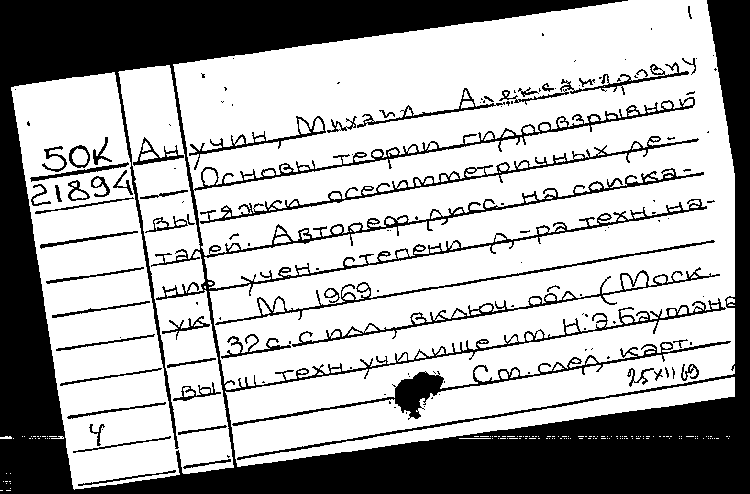 1
Анучин, Михаил Александрович
50К Основы теории гидровзрывной
21894 вытяжки осесимметричных де-
талей. Автореф. дисс. на соиска-
ние учен. степени д-ра техн. на-
ук. М., 1969.
32 с. с илл., включ. обл. (Моск.
высш. техн. училище им. Н.Э. Баумана
См. след. карт.
4 25 XII 69